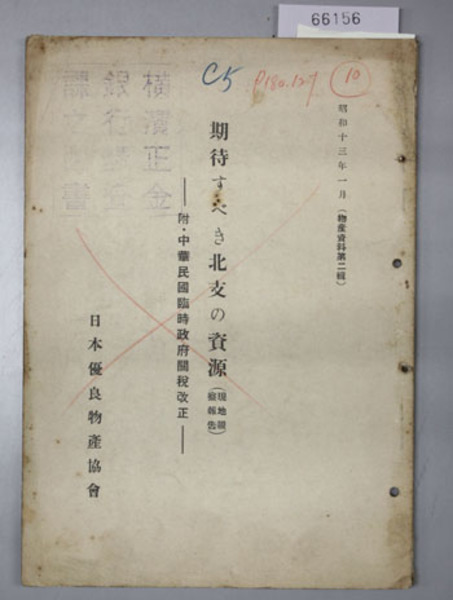 66156
C5
P180.127
10
昭和十三年一月(物産資料第二輯)
期待すべき北支の資源(現地視察報告)
——附・中華民國臨時政府關稅改正——
日本優良物產協會
橫濱正金
銀行調查
課之圖書